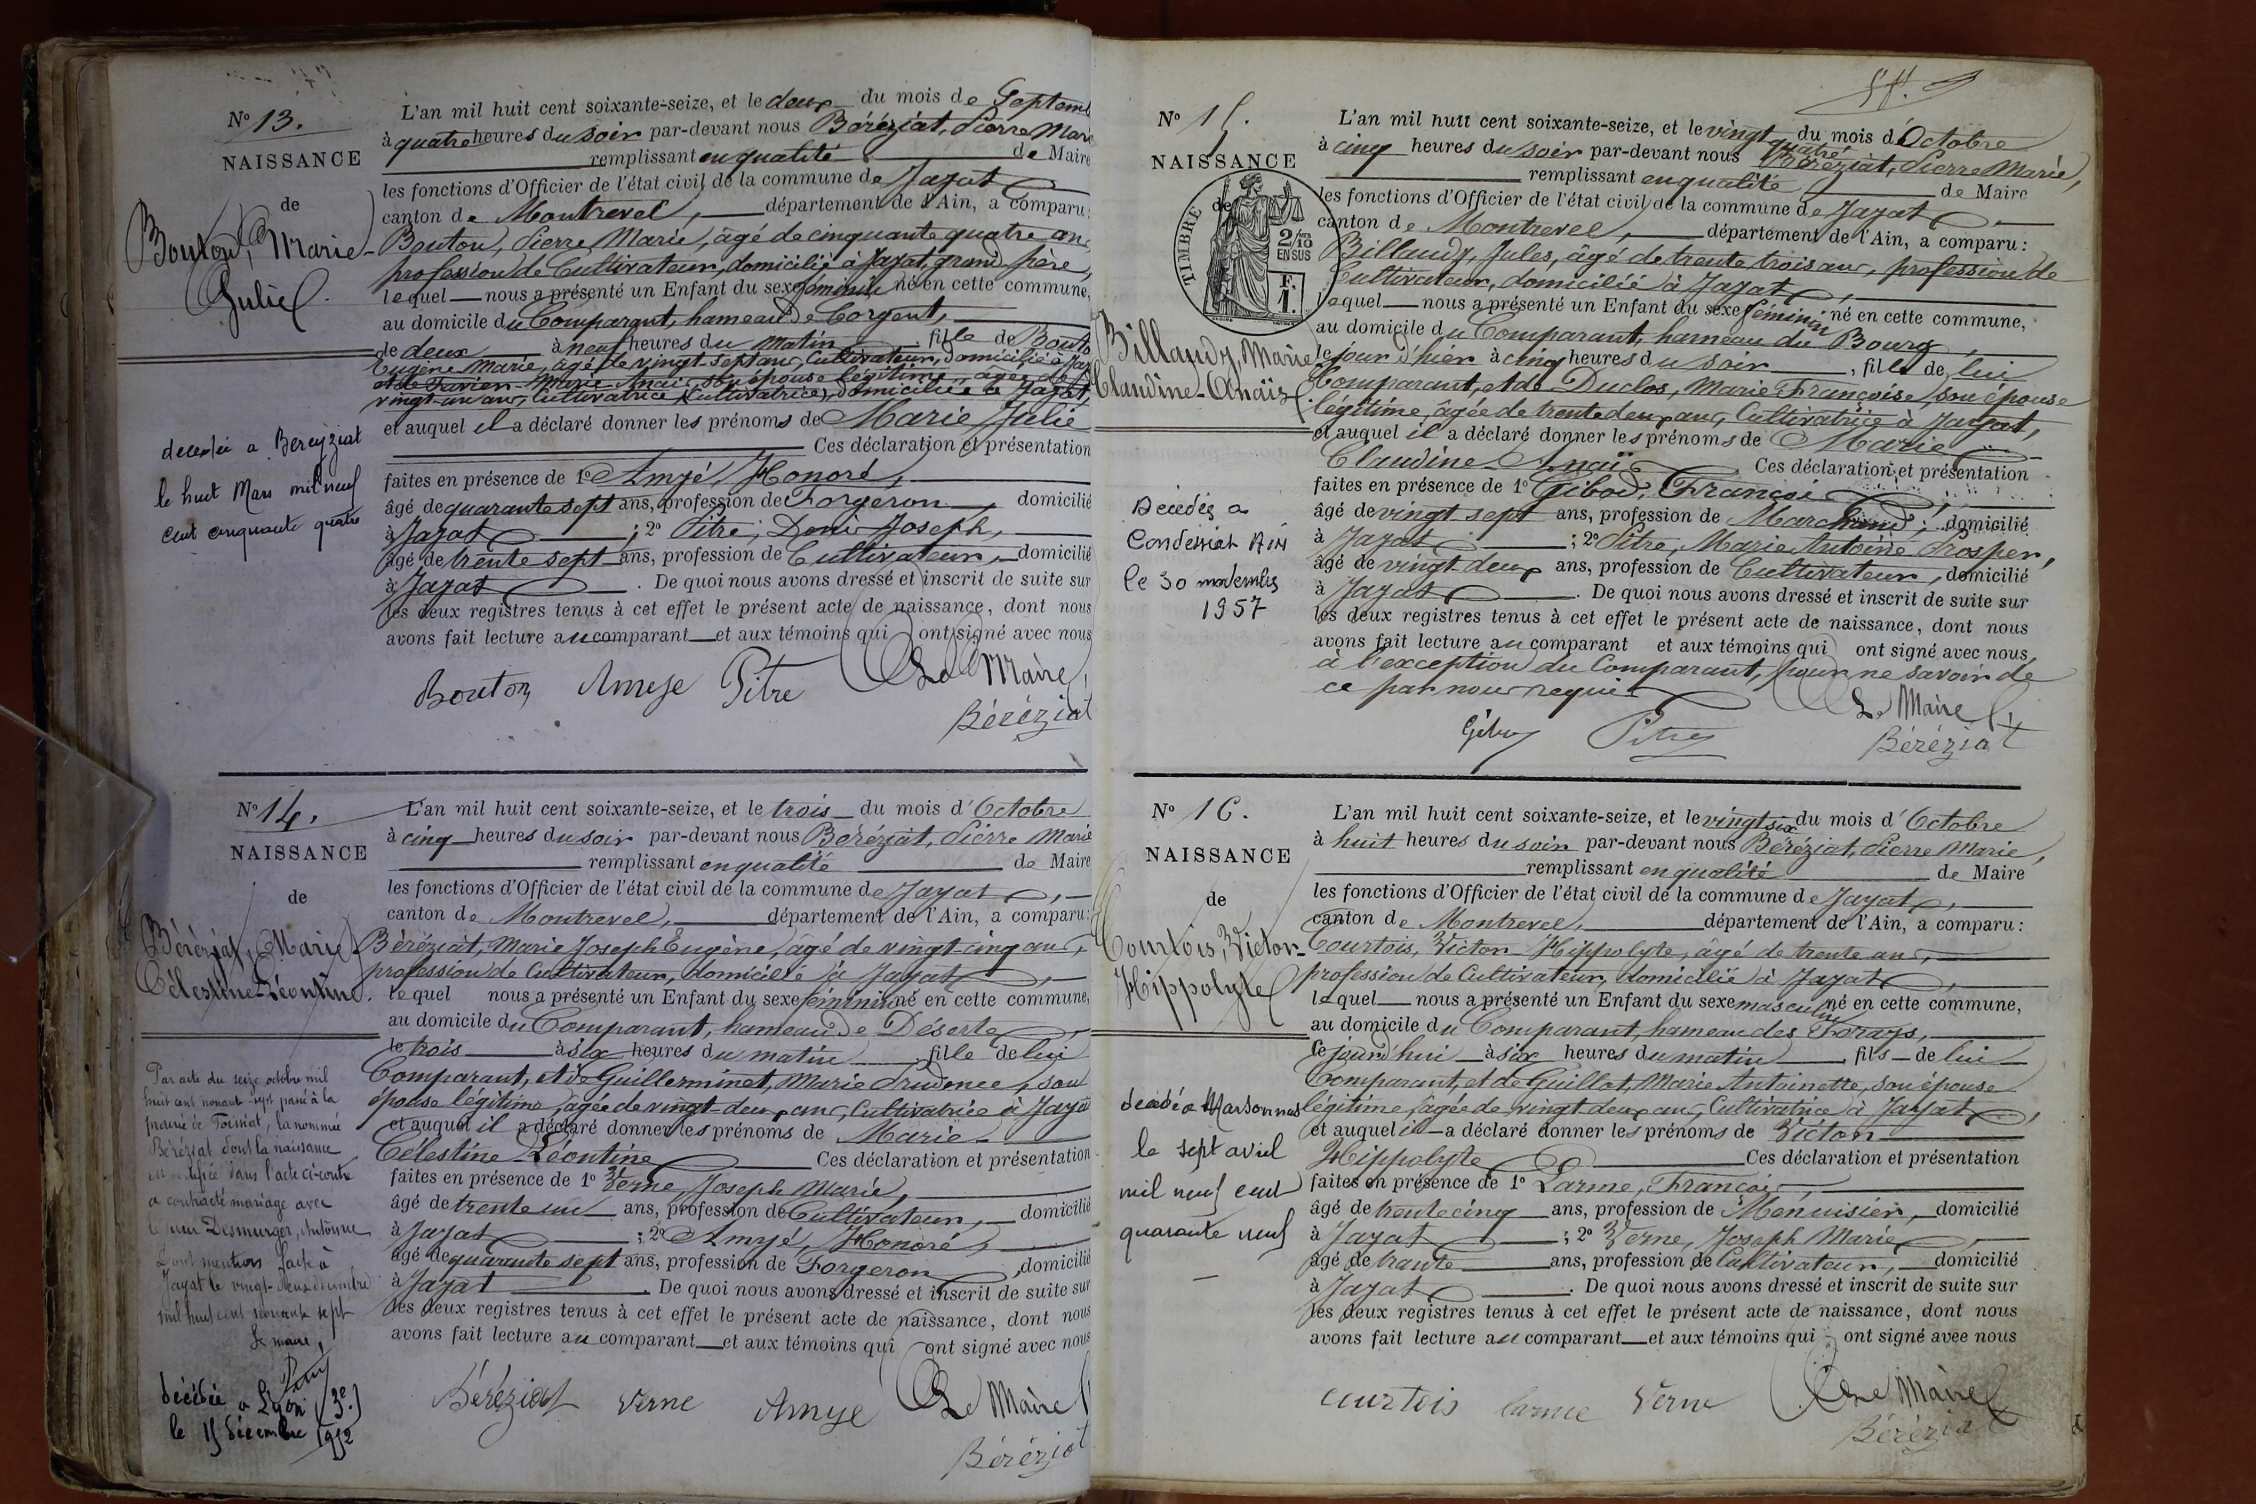 N° 13.
NAISSANCE
de
Bouton, Marie-
Julie.
decedée a Bereyziat
le huit Mars mil neuf
cent cinquante quatre
L'an mil huit cent soixante-seize, et le deux du mois de Septemb
à quatre heures du soir par-devant nous Béréziat, Pierre Marie
remplissant en qualité de Maire
les fonctions d'Officier de l'état civil de la commune de Jayat
canton de Montrevel, département de l'Ain, a comparu:
Bouton, Pierre Marie, âgé de cinquante quatre ans
profession de Cultivateur, domicilié à Jayat, grand père,
lequel nous a présenté un Enfant du sexe féminin né en cette commune,
au domicile du Comparant, hameau de Corgent,
le deux à neuf heures du matin, fille de Bouto
Eugène Marie, âgé de vingt sept ans, Cultivateur, domicilié à Jay
et de Marie Anaïs, son épouse légitime, âgée de
vingt-un ans, Cultivatrice (Cultivatrice), domiciliée à Jayat,
et auquel il a déclaré donner les prénoms de Marie Julie
Ces déclaration et présentation
faites en présence de 1° Amyé, Honoré,
âgé de quarante sept ans, profession de Forgeron domicilié
à Jayat ; 2° Pitre, Denis Joseph,
âgé de trente sept ans, profession de Cultivateur, domicilié
à Jayat. De quoi nous avons dressé et inscrit de suite sur
les deux registres tenus à cet effet le présent acte de naissance, dont nous
avons fait lecture au comparant et aux témoins qui ont signé avec nous
Bouton Amye Pitre Le Maire,
Béréziat
N° 14.
NAISSANCE
de
Béréziat, Marie
Célestine-Léontine.
Par acte du seize octobre mil
huit cent nonante sept passé à la
mairie de Foissiat, la nommée
Béréziat dont la naissance
est relatée dans l'acte ci-contre
a contracté mariage avec
le sieur Desmurger, Antoine
Dont mention faite à
Jayat le vingt-deux décembre
mil huit cent nonante sept
Le maire,
décédée a Lyon (3e)
le 15 décembre 1952
L'an mil huit cent soixante-seize, et le trois du mois d'Octobre
à cinq heures du soir par-devant nous Béréziat, Pierre Marie
remplissant en qualité de Maire
les fonctions d'Officier de l'état civil de la commune de Jayat,
canton de Montrevel, département de l'Ain, a comparu:
Béréziat, Marie Joseph Eugène, âgé de vingt-cinq ans,
profession de Cultivateur, domicilié à Jayat,
lequel nous a présenté un Enfant du sexe féminin né en cette commune,
au domicile du Comparant, hameau de Déserte,
le trois à six heures du matin, fille de lui
Comparant, et de Guillerminet, Marie Prudence, son
épouse légitime, âgée de vingt-deux ans, Cultivatrice à Jaya
et auquel il a déclaré donner les prénoms de Marie-
Célestine Léontine Ces déclaration et présentation
faites en présence de 1° Verne, Joseph Marie,
âgé de trente un ans, profession de Cultivateur, domicilié
à Jayat ; 2° Amyé, Honoré,
âgé de quarante sept ans, profession de Forgeron, domicilié
à Jayat. De quoi nous avons dressé et inscrit de suite sur
les deux registres tenus à cet effet le présent acte de naissance, dont nous
avons fait lecture au comparant et aux témoins qui ont signé avec nous
Béréziat Verne Amyé Le Maire
Béréziat
N° 15.
NAISSANCE
de
TIMBRE
2/10 EN SUS
F. 1.
Billaudy, Marie
Claudine-Anaïs.
Décédée a
Condeissiat AIN
le 30 novembre
1957
L'an mil huit cent soixante-seize, et le vingt quatre du mois d'Octobre
à cinq heures du soir par-devant nous Béréziat, Pierre Marie,
remplissant en qualité de Maire
les fonctions d'Officier de l'état civil de la commune de Jayat
canton de Montrevel, département de l'Ain, a comparu:
Billaudy, Jules, âgé de trente trois ans, profession de
Cultivateur, domicilié à Jayat,
lequel nous a présenté un Enfant du sexe féminin né en cette commune,
au domicile du Comparant, hameau du Bourg,
le jour d'hier à cinq heures du soir, fille de lui
Comparant, et de Duclos, Marie Françoise, son épouse
légitime, âgée de trente deux ans, Cultivatrice à Jayat,
et auquel il a déclaré donner les prénoms de Marie
Claudine Anaïs Ces déclaration et présentation
faites en présence de 1° Gibod, François,
âgé de vingt sept ans, profession de Marchand, domicilié
à Jayat ; 2° Pitre, Marie Antoine Prosper,
âgé de vingt deux ans, profession de Cultivateur, domicilié
à Jayat. De quoi nous avons dressé et inscrit de suite sur
les deux registres tenus à cet effet le présent acte de naissance, dont nous
avons fait lecture au comparant et aux témoins qui ont signé avec nous,
à l'exception du Comparant, pour ne savoir de
ce par nous requis
Le Maire
Pitre
Béréziat
N° 16.
NAISSANCE
de
Courtois, Victor-
Hippolyte
décédé a Marsonnas
le sept avril
mil neuf cent
quarante neuf
L'an mil huit cent soixante-seize, et le vingt six du mois d'Octobre
à huit heures du soir par-devant nous Béréziat, Pierre Marie,
remplissant en qualité de Maire
les fonctions d'Officier de l'état civil de la commune de Jayat,
canton de Montrevel, département de l'Ain, a comparu:
Courtois, Victor-Hippolyte, âgé de trente ans,
profession de Cultivateur, domicilié à Jayat,
lequel nous a présenté un Enfant du sexe masculin né en cette commune,
au domicile du Comparant, hameau des Forays,
ce jourd'hui à six heures du matin, fils de lui
Comparant, et de Guillot, Marie Antoinette, son épouse
légitime, âgée de vingt deux ans, Cultivatrice à Jayat,
et auquel il a déclaré donner les prénoms de Victor
Hippolyte Ces déclaration et présentation
faites en présence de 1° Larme, François,
âgé de trente cinq ans, profession de Menuisier, domicilié
à Jayat ; 2° Verne, Joseph Marie,
âgé de trente ans, profession de Cultivateur, domicilié
à Jayat. De quoi nous avons dressé et inscrit de suite sur
les deux registres tenus à cet effet le présent acte de naissance, dont nous
avons fait lecture au comparant et aux témoins qui ont signé avec nous
Courtois Larme Verne Le Maire
Béréziat